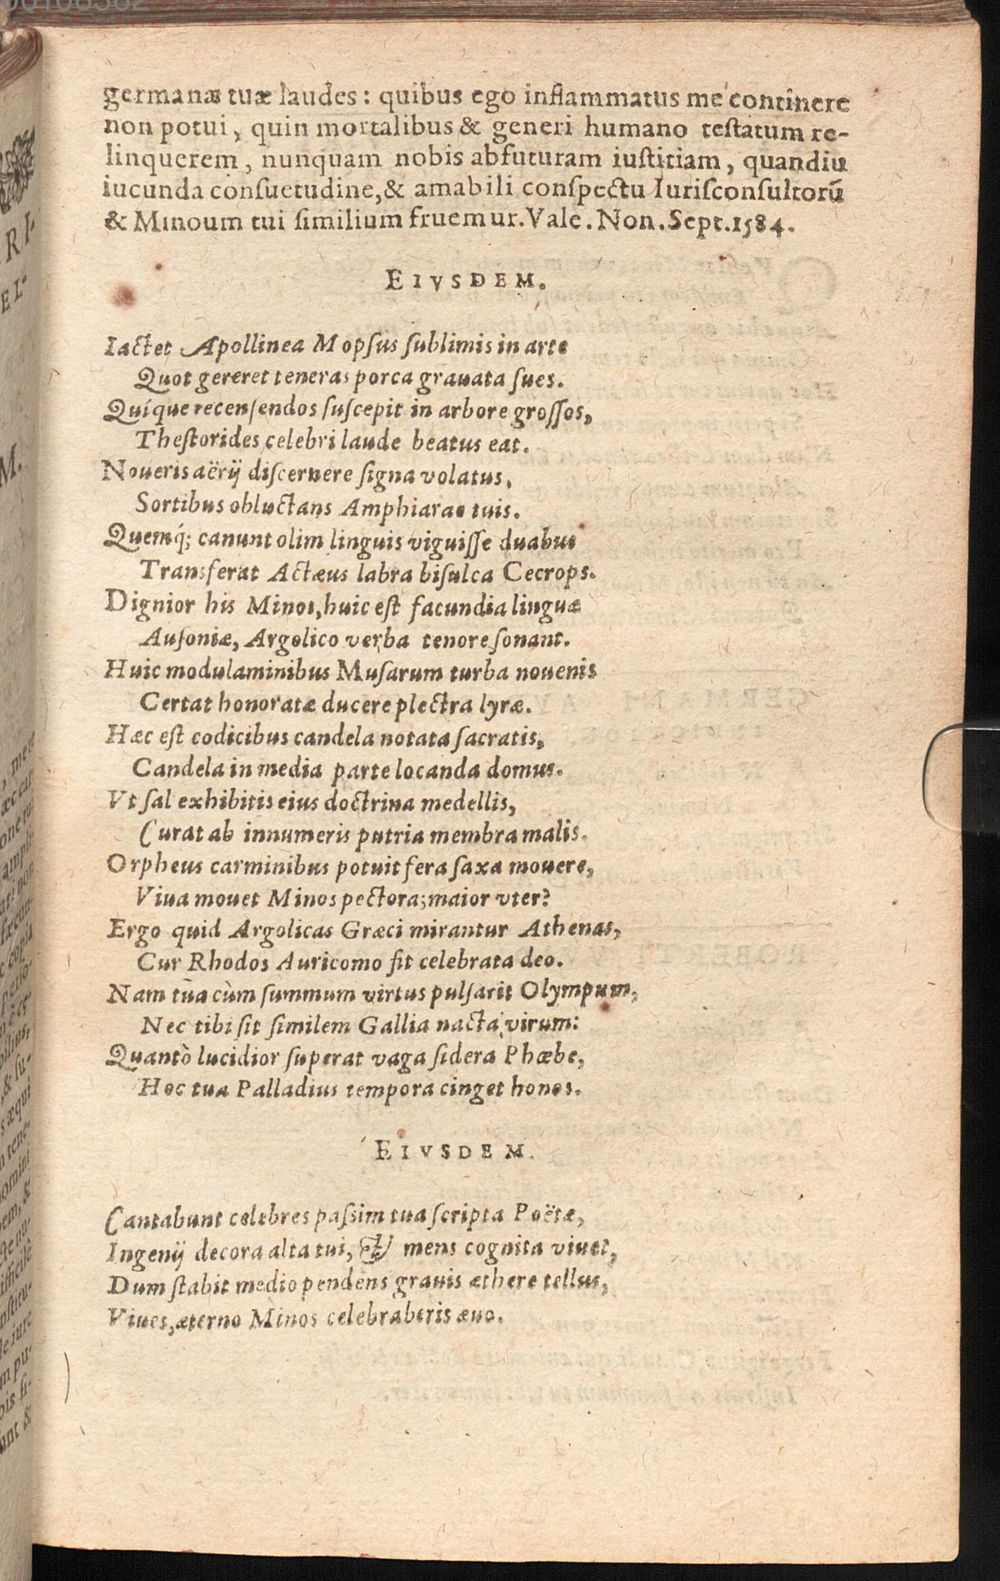 germanæ tuæ laudes: quibus ego inflammatus me continere
non potui, quin mortalibus & generi humano testatum re-
linquerem, nunquam nobis abfuturam iustitiam, quandiu
iucunda consuetudine, & amabili conspectu Iurisconsultorū
& Minoum tui similium fruemur. Vale. Non. Sept. 1584.
EIVSDEM.
Iactet Apollinea Mopsus sublimis in arte
Quot gereret teneras porca grauata sues.
Quíque recensendos suscepit in arbore grossos,
Thestorides celebri laude beatus eat.
Noueris aërij discernere signa volatus,
Sortibus obluctans Amphiarae tuis.
Quemq́; canunt olim linguis viguisse duabus
Transferat Actæus labra bisulca Cecrops.
Dignior his Minos, huic est facundia linguæ
Ausoniæ, Argolico verba tenore sonant.
Huic modulaminibus Musarum turba nouenis
Certat honoratæ ducere plectra lyræ.
Hæc est codicibus candela notata sacratis,
Candela in media parte locanda domus.
Vt sal exhibitis eius doctrina medellis,
Curat ab innumeris putria membra malis.
Orpheus carminibus potuit fera saxa mouere,
Viua mouet Minos pectora; maior vter?
Ergo quid Argolicas Græci mirantur Athenas,
Cur Rhodos Auricomo sit celebrata deo.
Nam tua cùm summum virtus pulsarit Olympum,
Nec tibi sit similem Gallia nacta virum:
Quantò lucidior superat vaga sidera Phœbe,
Hoc tua Palladius tempora cinget honos.
EIVSDEM.
Cantabunt celebres passim tua scripta Poëtæ,
Ingenij decora alta tui, & mens cognita viuet,
Dum stabit medio pendens grauis æthere tellus,
Viues, æterno Minos celebraberis æuo.